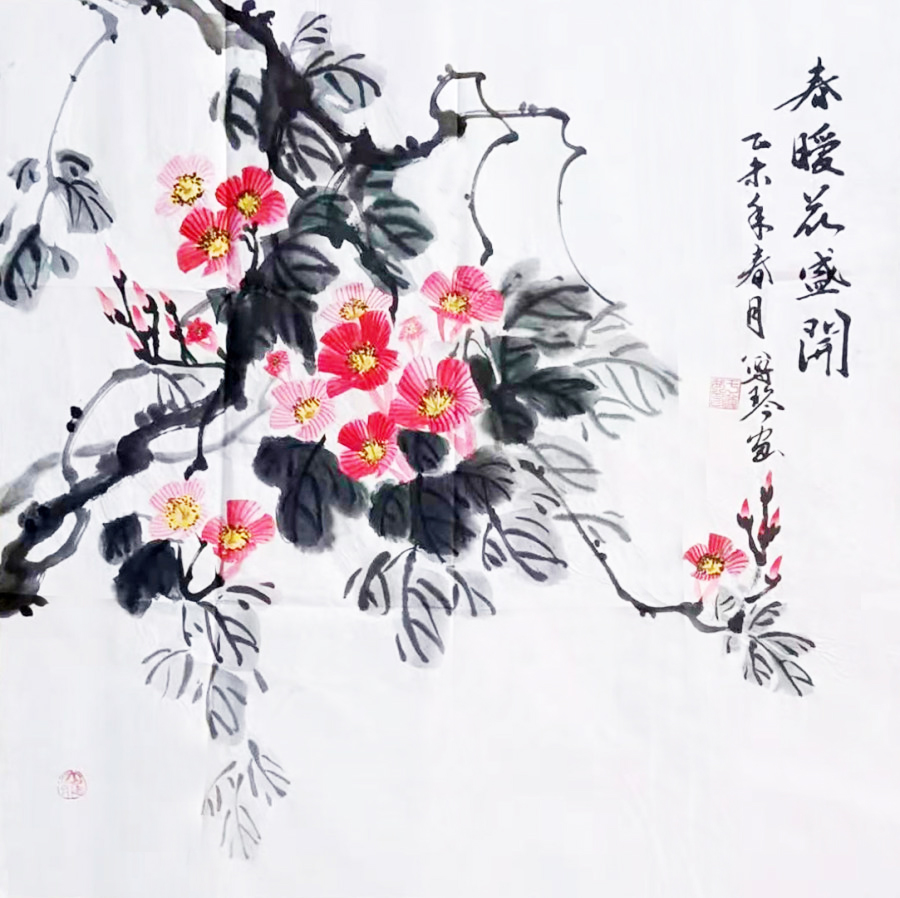 春暖花盛開
乙未年春月 琴画